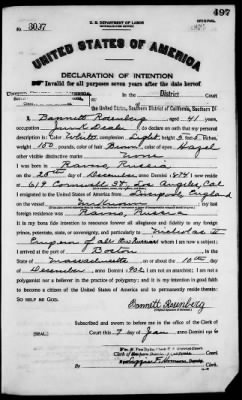 497
U. S. DEPARTMENT OF LABOR
ORIGINAL
No. 3037
UNITED STATES OF AMERICA
DECLARATION OF INTENTION
Invalid for all purposes seven years after the date hereof
District Court
the United States, Southern District of California, Southern
I, Bannett Rosenberg, aged 41 years,
occupation Junk Dealer, do declare on oath that my personal
description is: Color White, complexion Light, height 5 feet inches,
weight 150 pounds, color of hair Brown, color of eyes Hazel
other visible distinctive marks None
I was born in Russia
on the 20th day of December, anno Domini 1874; I now reside
at Los Angeles, Cal.
I emigrated to the United States of America from Liverpool England
on the vessel Unknown; my last
foreign residence was Russia
It is my bona fide intention to renounce forever all allegiance and fidelity to any foreign
prince, potentate, state, or sovereignty, and particularly to Nicholas II
Emperor of all the Russias of whom I am now a subject; I
arrived at the port of Boston, in the
State of Massachusetts on or about the 10th day
of December, anno Domini 1902; I am not an anarchist; I am not a
polygamist nor a believer in the practice of polygamy; and it is my intention in good faith
to become a citizen of the United States of America and to permanently reside therein:
SO HELP ME GOD.
Bannett Rosenberg
Subscribed and sworn to before me in the office of the Clerk of
[SEAL] Court this 7 day of Jan anno Domini 1916
Clerk of
By Clerk